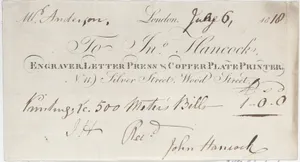 Mr. Anderson, London, July 6, 1818
To Jno. Hancock,
ENGRAVER, LETTER PRESS & COPPER PLATE PRINTER,
No. 19 Silver Street, Wood Street
Printing &c. 500 Bills 1-0-0
J H Recd.
John Hancock